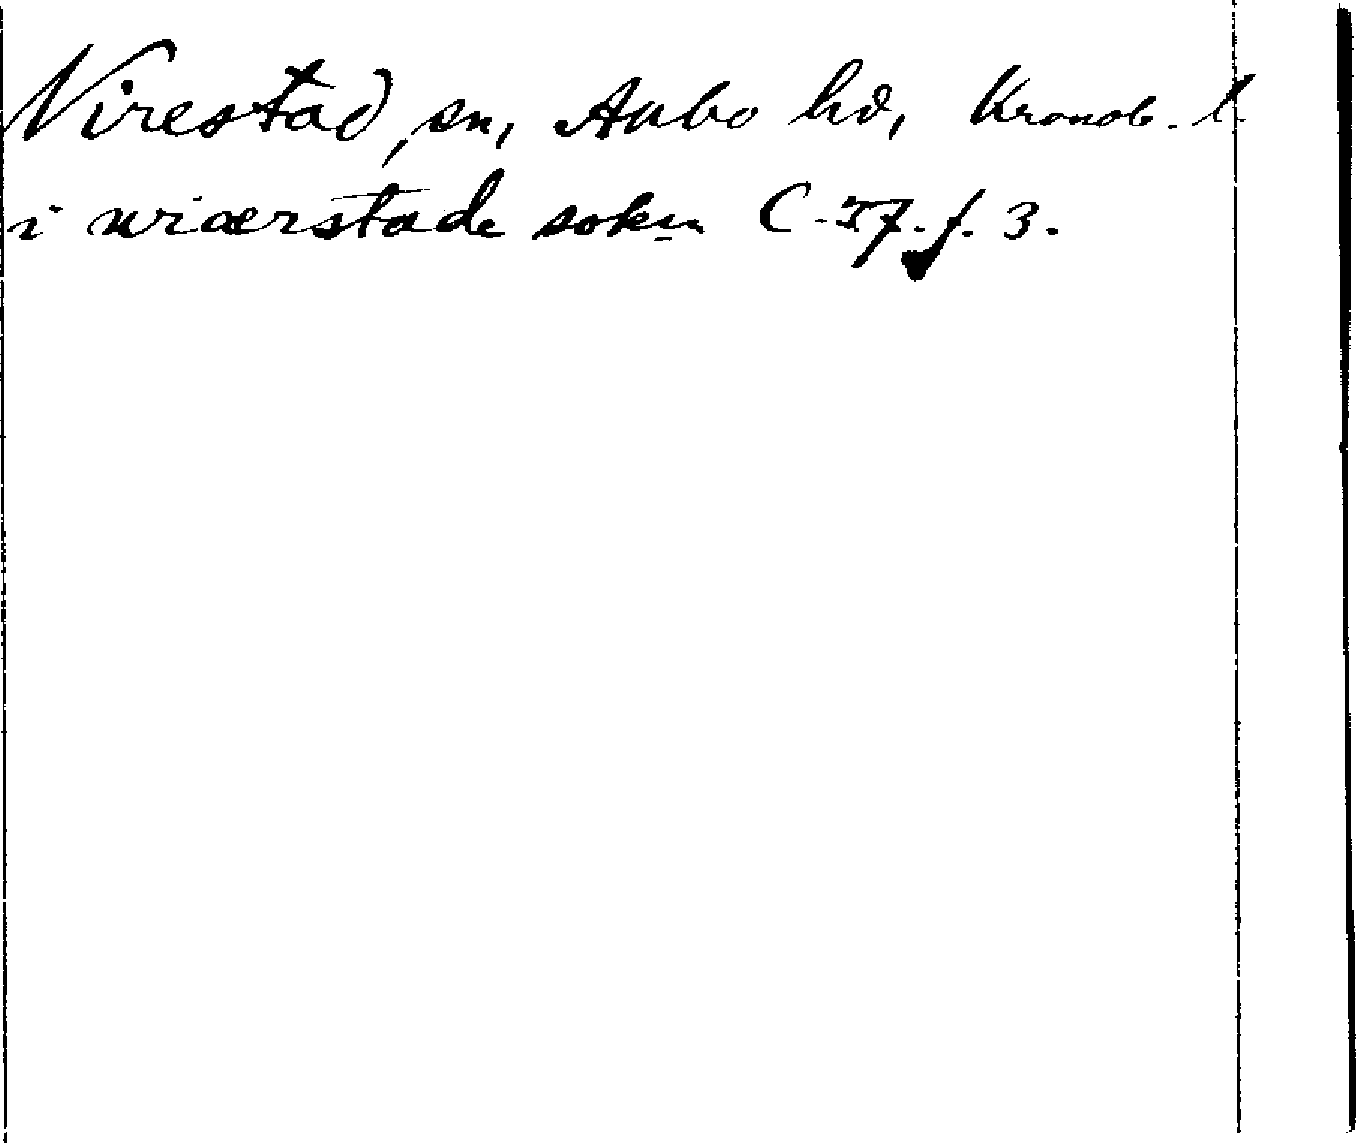 Virestad, sn, Allbo hd, Kronob. l.
i wiærstade sokn C-37. f. 3.